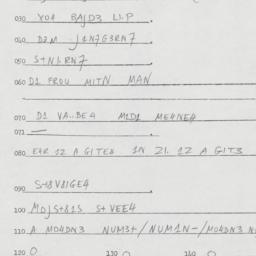 030 YOA BAJD3 LI.P
040 DZM J1N7G3RN7
050 S+NLRN7
060 D1 FROU MITN MAN
070 D1 VA..BE4 M1D1 ME4NE4
071 —
080 E4R 1Z A G1TE4 1N Z1. 1Z A G1T3
090 S+8V81GE4
100 MDJS+81S S+VEE4
110 A MO4DN3 NUM3+/NUM1N-/MO4DN3 N
120 O 130 O 140 O